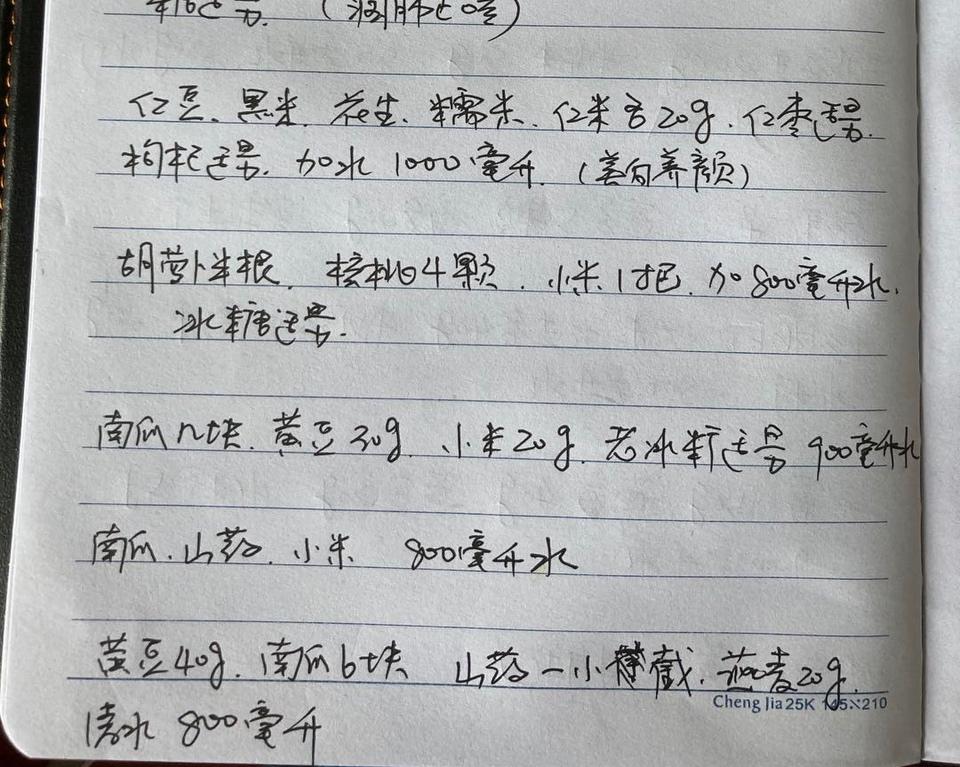 糖适量. (润肺止咳)
红豆、黑米、花生、糯米、红米各20g、红枣适量.
枸杞适量. 加水 1000毫升. (美白养颜)
胡萝卜半根、核桃4颗、小米1把、加800毫升水、
冰糖适量.
南瓜n块、黄豆30g、小米20g、老冰糖适量 900毫升水
南瓜、山药、小米 800毫升水
黄豆40g、南瓜6块 山药一小截、燕麦20g.
清水 800毫升
Cheng Jia 25K 145×210